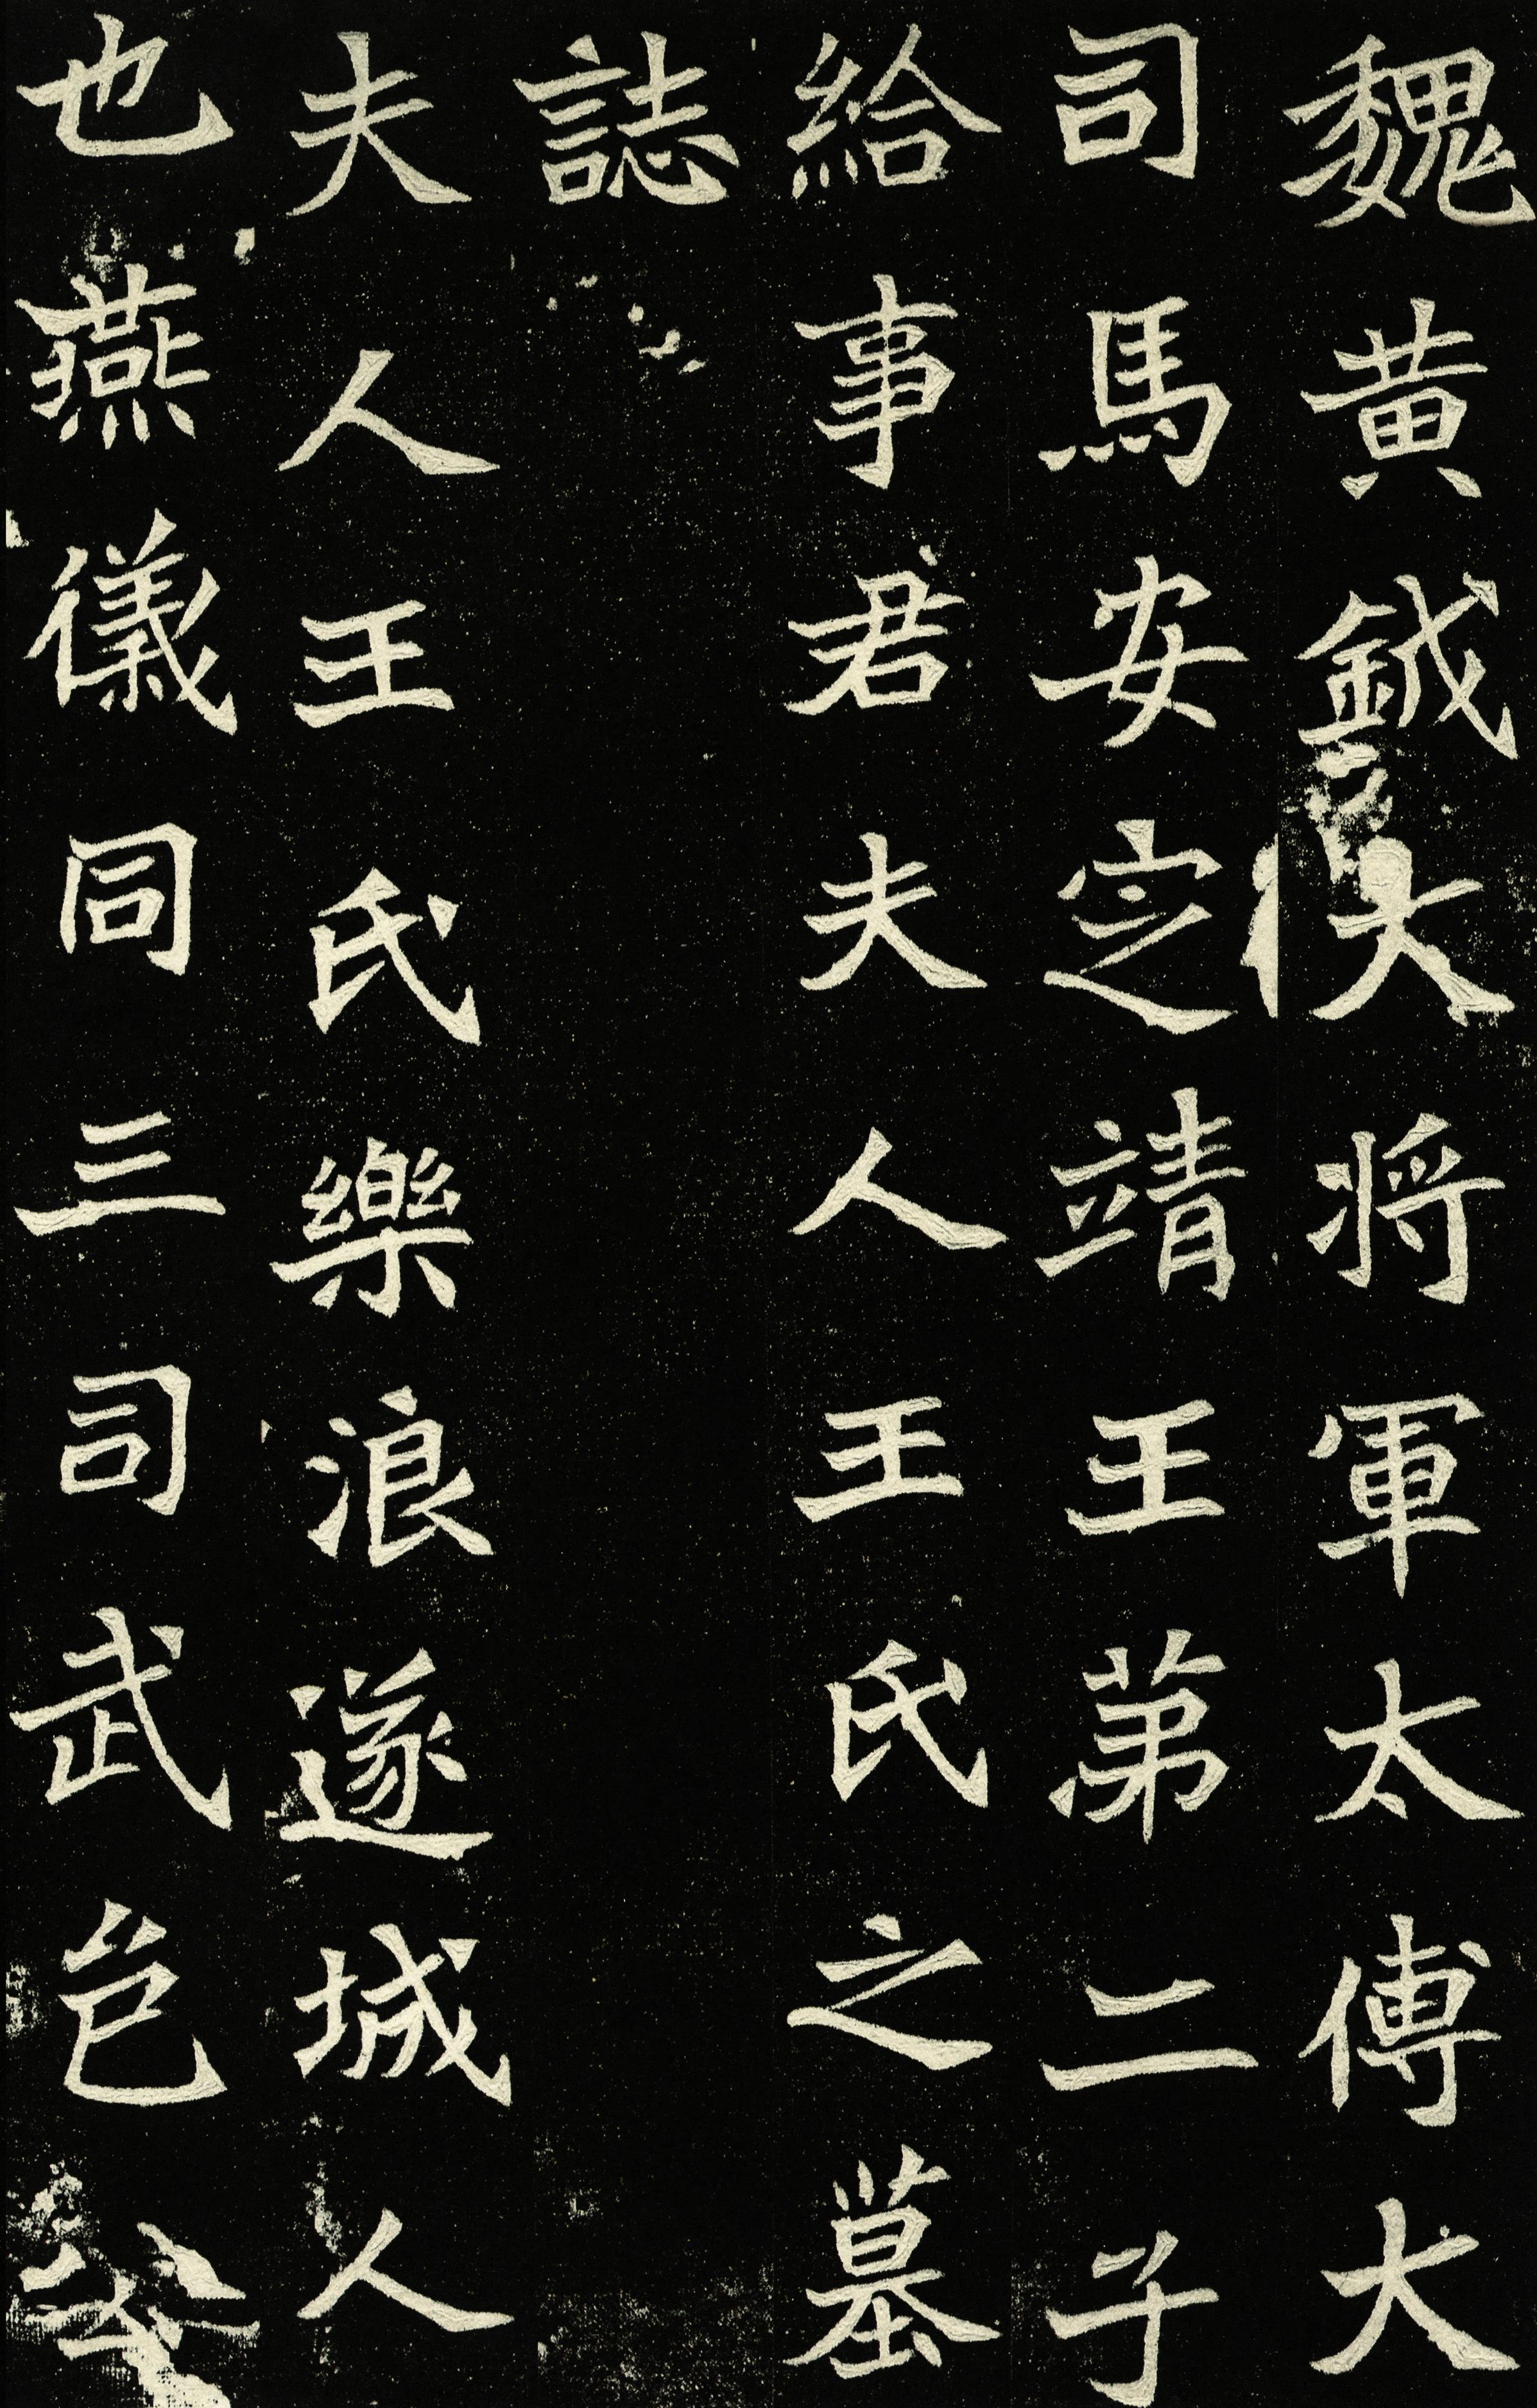 魏黄鉞大将軍太傅大
司馬安定靖王第二子
給事君夫人王氏之墓
誌
夫人王氏樂浪遂城人
也燕儀同三司武邑公